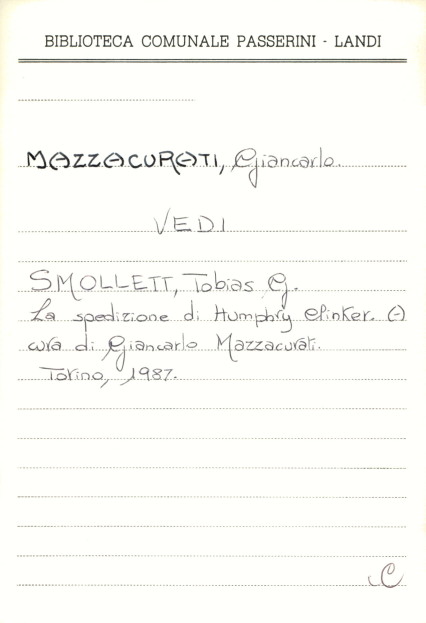 BIBLIOTECA COMUNALE PASSERINI - LANDI
MAZZACURATI, Giancarlo.
VEDI
SMOLLETT, Tobias G.
La spedizione di Humphry Clinker. (-)
cura di Giancarlo Mazzacurati.
Torino, 1987.
C